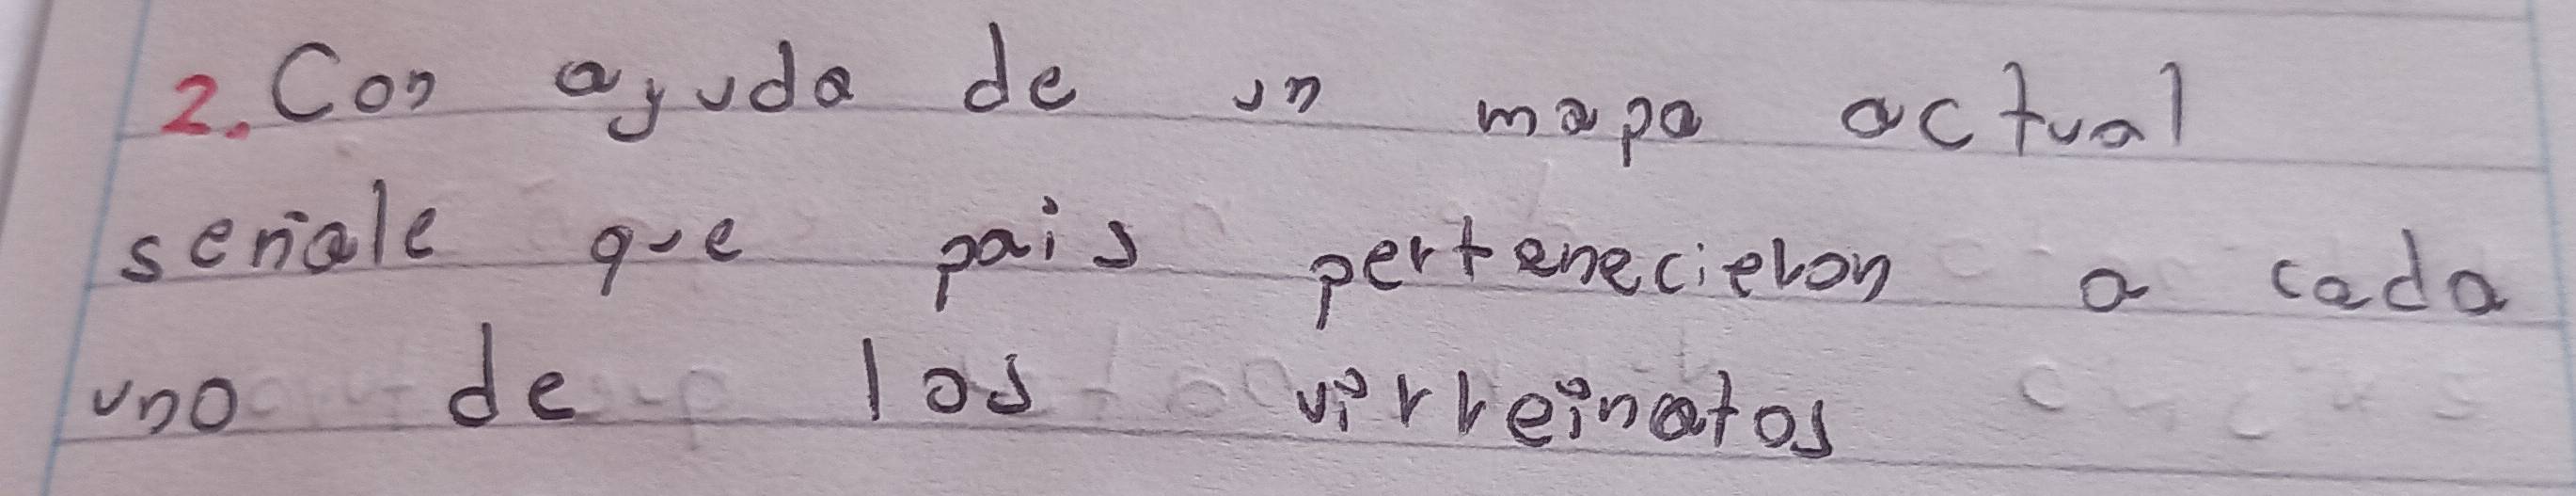 2. Con ayuda de un mapa actual
señale que pais pertenecieron a cada
uno de los virreinatos